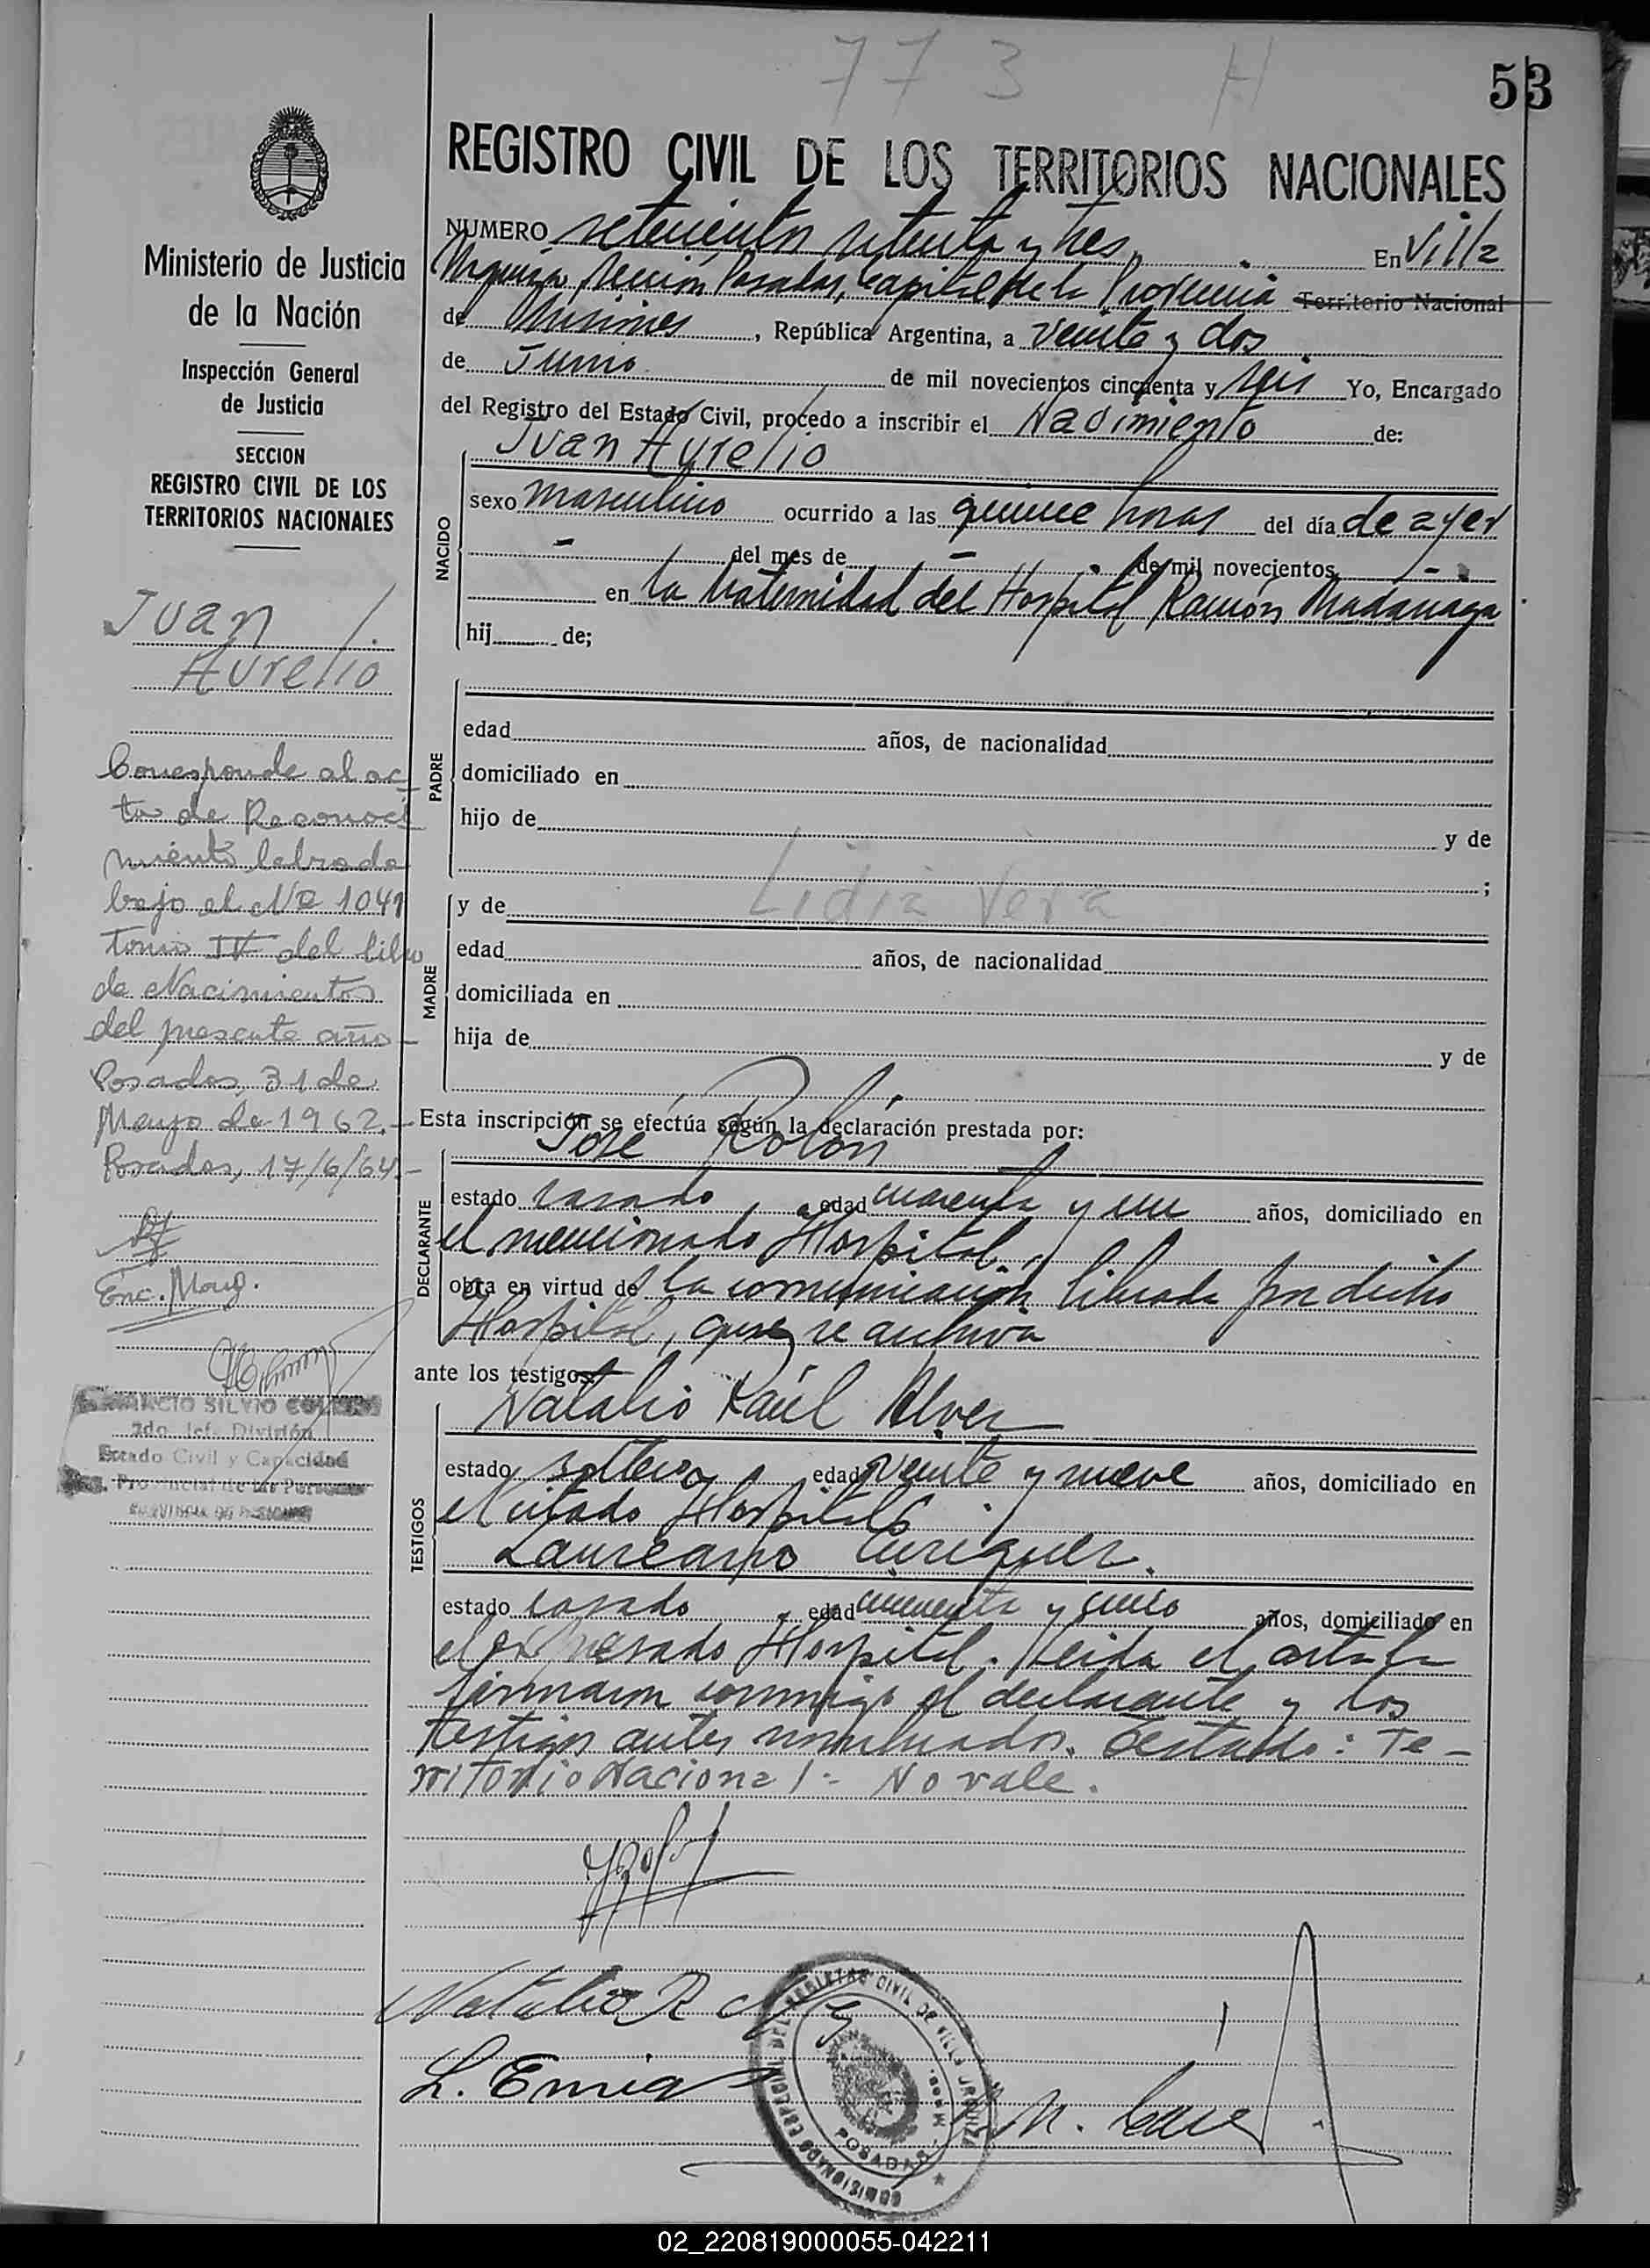 773 H
53
REGISTRO CIVIL DE LOS TERRITORIOS NACIONALES
NUMERO setecientos setenta y tres En Villa
Urquiza, Sección Posadas, Capital de la Provincia Territorio Nacional
de Misiones, República Argentina, a veinte y dos
de Junio de mil novecientos cincuenta y seis Yo, Encargado
del Registro del Estado Civil, procedo a inscribir el Nacimiento de:
Juan Aurelio
NACIDO
sexo masculino ocurrido a las quince horas del día de ayer
- del mes de - de mil novecientos -
en la Maternidad del Hospital Ramón Madariaga
hij de;
PADRE
edad años, de nacionalidad
domiciliado en
hijo de y de
;
MADRE
y de Lidia Vera
edad años, de nacionalidad
domiciliada en
hija de y de
Esta inscripción se efectúa según la declaración prestada por:
José Rolón
DECLARANTE
estado casado, edad cuarenta y un años, domiciliado en
el mencionado Hospital.
obra en virtud de la comunicación librada por dicho
Hospital, que se archiva
ante los testigos
Natalio Raúl Alvez
TESTIGOS
estado soltero, edad veinte y nueve años, domiciliado en
el citado Hospital y
Laureano
estado casado, edad cincuenta y cinco años, domiciliado en
el expresado Hospital. Leida el acta la
firmaron conmigo el declarante y los
testigos antes nombrados. Testado: Te-
rritorio Nacional - No vale.
Natalio R
L.
POSADAS
Ministerio de Justicia
de la Nación
Inspección General
de Justicia
SECCION
REGISTRO CIVIL DE LOS
TERRITORIOS NACIONALES
Juan
Aurelio
Corresponde al ac-
ta de Reconoci
miento labrada
bajo el Nº 1041
tomo IV del libro
de Nacimientos
del presente año-
Posadas, 31 de
Mayo de 1962.-
Posadas, 17/6/64.-
Enc. Marg.
SILVIO
2do. Jefe División
Estado Civil y Capacidad
Provincial de las Personas
02_220819000055-042211